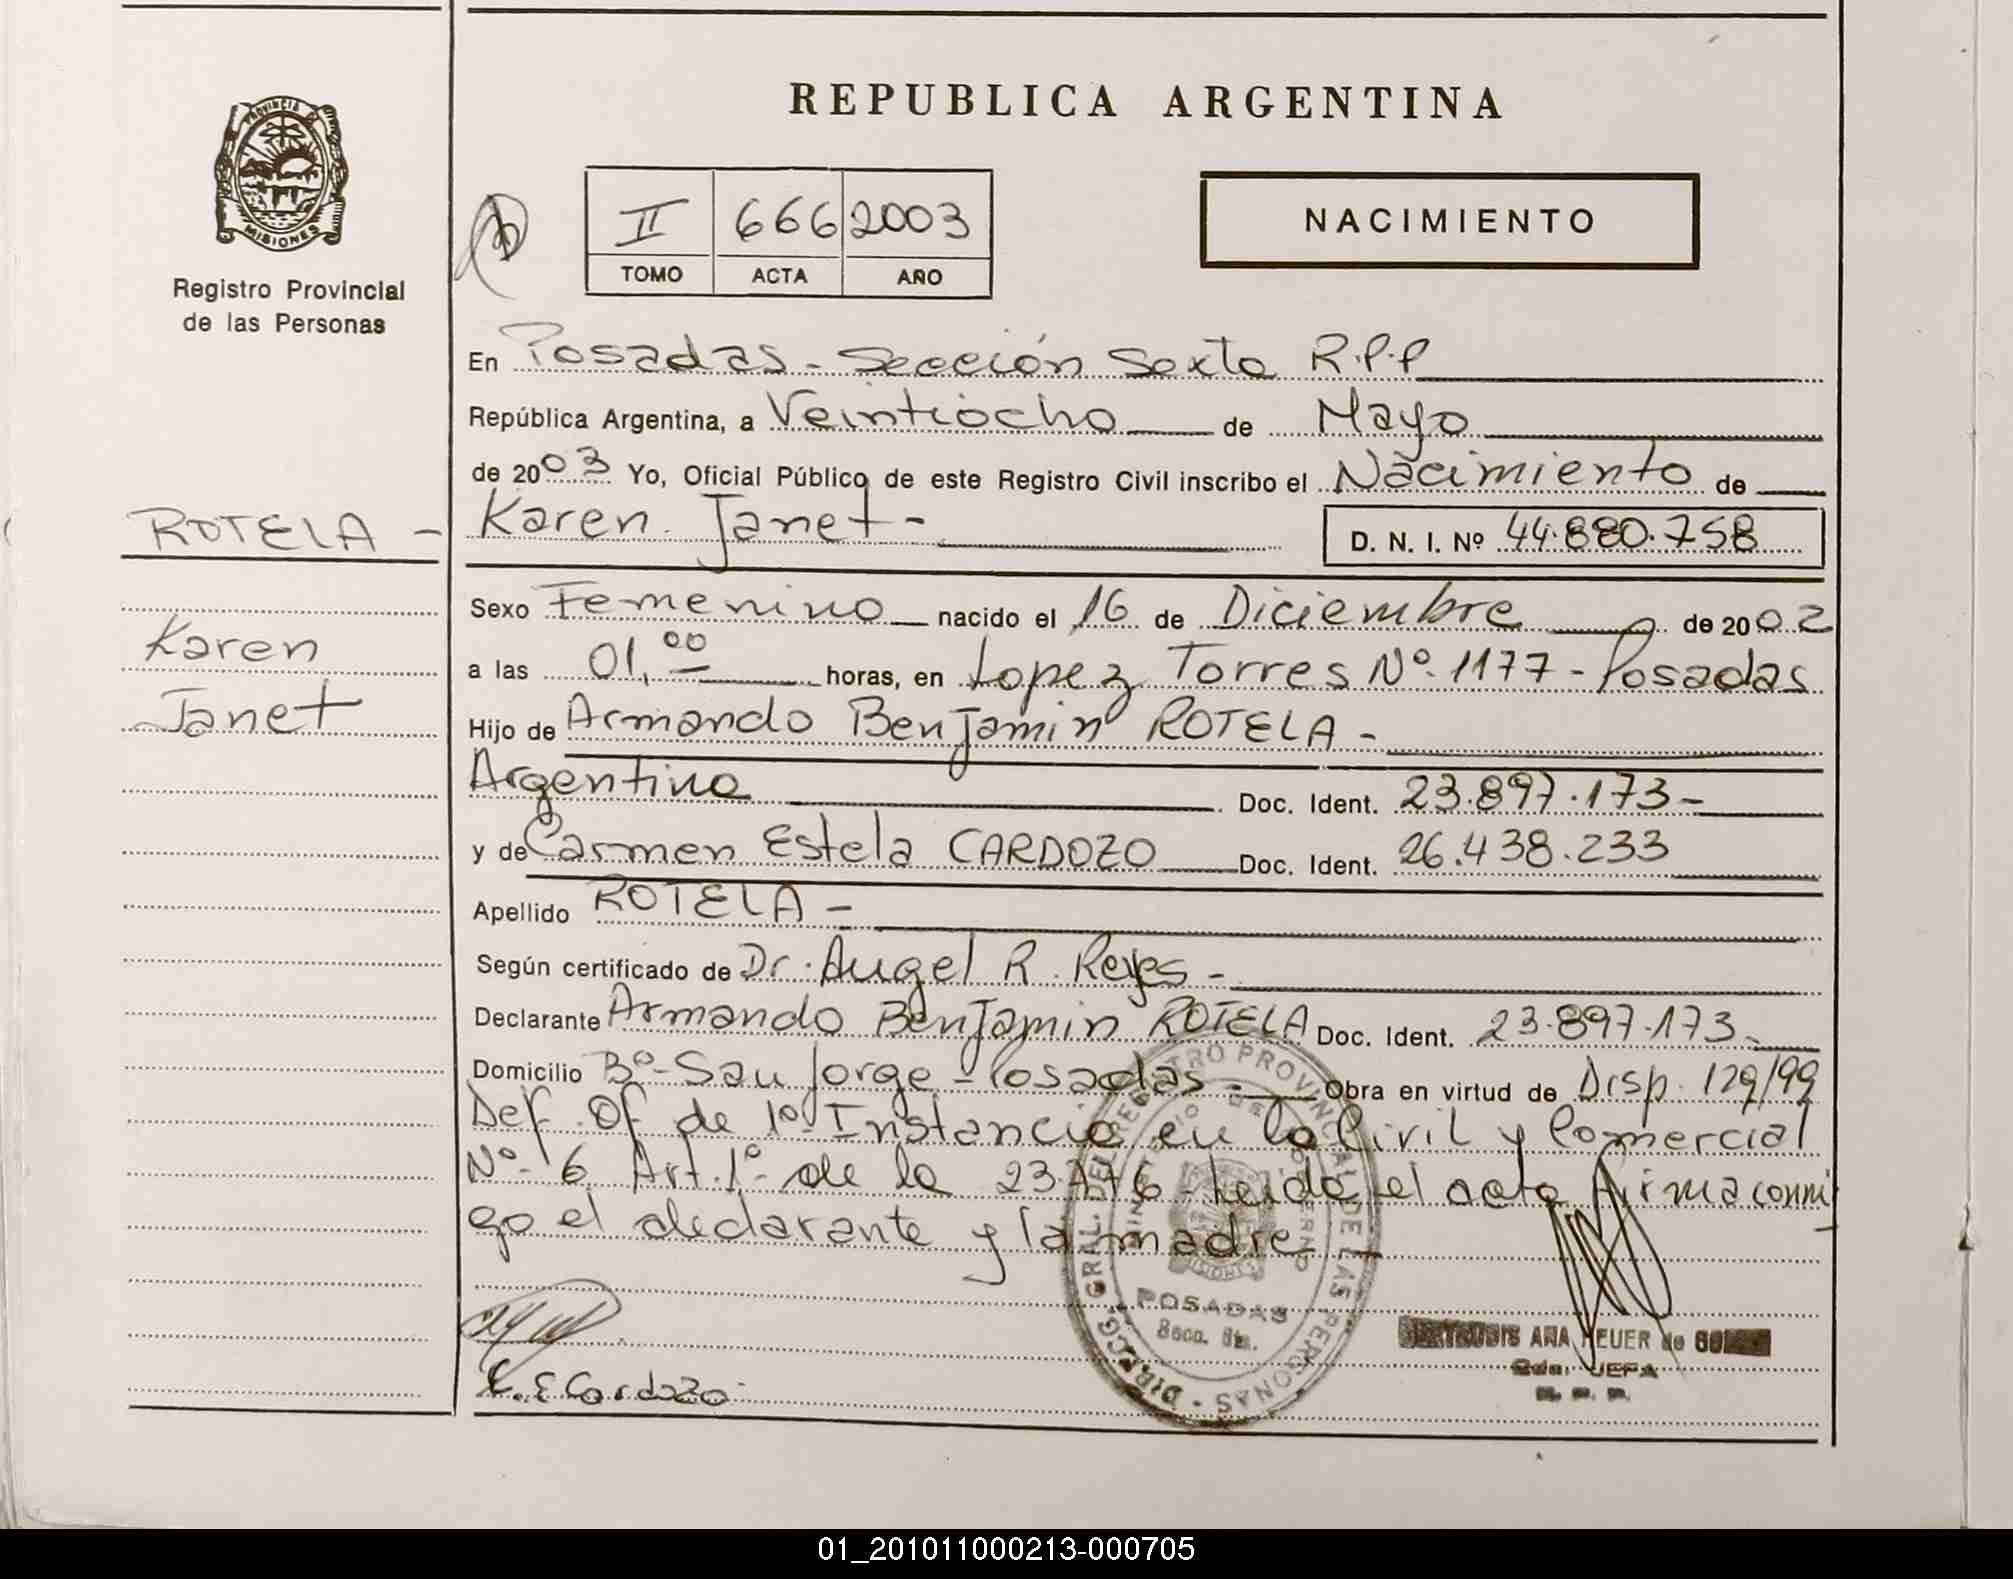 REPUBLICA ARGENTINA
PROVINCIA DE
MISIONES
Registro Provincial
de las Personas
II 666 2003
TOMO ACTA AÑO
NACIMIENTO
En Posadas - Sección Sexta R.P.P
República Argentina, a Veintiocho de Mayo
de 2003 Yo, Oficial Público de este Registro Civil inscribo el Nacimiento de
ROTELA -
Karen Janet -
D. N. I. Nº 44.880.758
Karen
Janet
Sexo Femenino nacido el 16 de Diciembre de 2002
a las 01,00 horas, en Lopez Torres Nº. 1177 - Posadas
Hijo de Armando Benjamin ROTELA -
Argentina Doc. Ident. 23.897.173-
y de Carmen Estela CARDOZO Doc. Ident. 26.438.233
Apellido ROTELA -
Según certificado de Dr. Angel R. Reyes -
Declarante Armando Benjamin ROTELA Doc. Ident. 23.897.173-
Domicilio Bº- San Jorge - Posadas - Obra en virtud de Disp. 129/99
Def. Of de 1º Instancia en lo Civil y Comercial
Nº. 6 Art. 1º. de la 23.776 - Leida el acta firma conmi
go el declarante y la madre -
C. E Cardozo
DIRECC. GRAL. DEL REGISTRO PROVINCIAL DE LAS PERSONAS
MINISTERIO DE GOBIERNO
POSADAS
Secc. 6ta.
ANA HEUER de
JEFA
R. P. P.
01_201011000213-000705